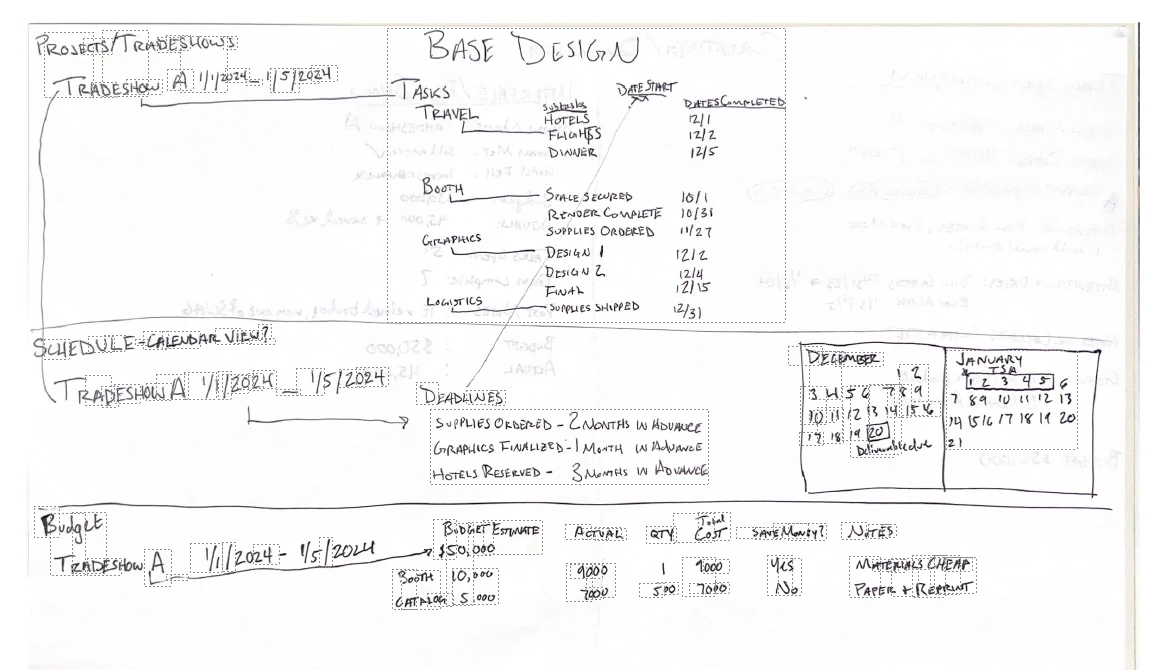 PROJECTS/TRADESHOWS
BASE DESIGN
TRADESHOW A 1/1/2024 - 1/5/2024
TASKS
DATE START
TRAVEL
Subtasks
DATES COMPLETED
HOTELS 12/1
FLIGHTS 12/2
DINNER 12/5
BOOTH
SPACE SECURED 10/1
RENDER COMPLETE 10/31
SUPPLIES ORDERED 11/27
GRAPHICS
DESIGN 1 12/2
DESIGN 2 12/4
FINAL 12/15
LOGISTICS
SUPPLIES SHIPPED 12/31
SCHEDULE - CALENDAR VIEW?
TRADESHOW A 1/1/2024 - 1/5/2024
DEADLINES
SUPPLIES ORDERED - 2 MONTHS IN ADVANCE
GRAPHICS FINALIZED - 1 MONTH IN ADVANCE
HOTELS RESERVED - 3 MONTHS IN ADVANCE
DECEMBER
1 2
3 4 5 6 7 8 9
10 11 12 13 14 15 16
17 18 19 20
Deliverable due
JANUARY
TSA
1 2 3 4 5 6
7 8 9 10 11 12 13
14 15 16 17 18 19 20
21
Budget
BUDGET ESTIMATE ACTUAL QTY Total COST SAVE MONEY? NOTES
TRADESHOW A 1/1/2024 - 1/5/2024
$50,000
BOOTH 10,000 9000 1 9000 Yes MATERIALS CHEAP
CATALOG 5,000 7000 500 7000 No PAPER + REPRINT